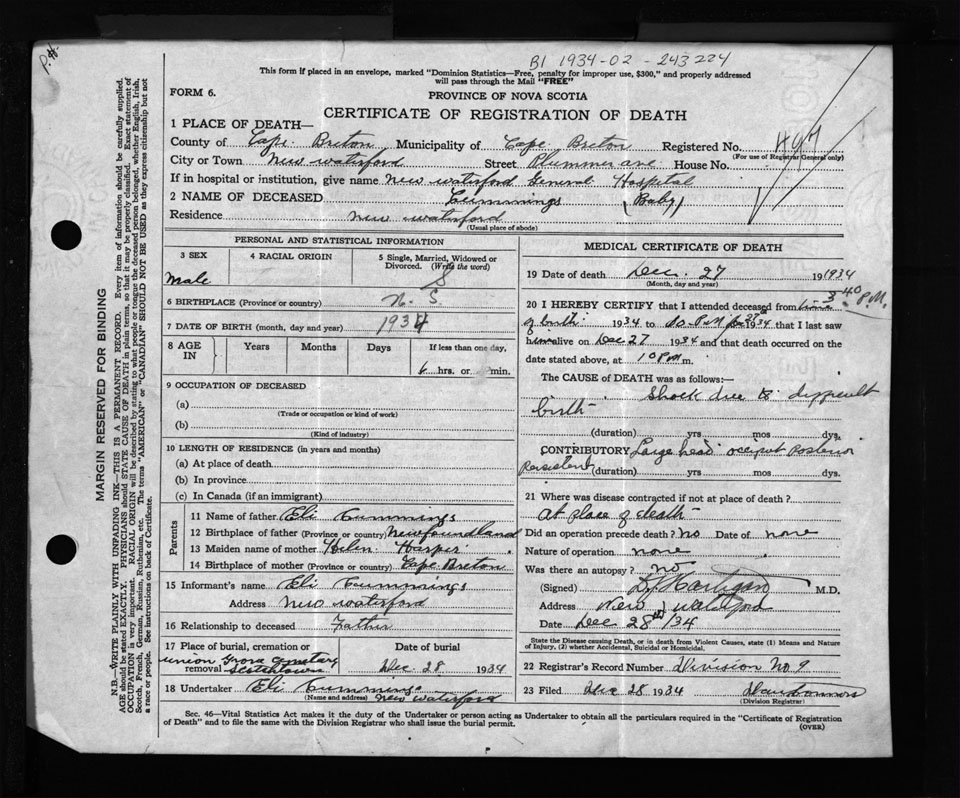 P.
B1 1934-02-243224
This form if placed in an envelope, marked "Dominion Statistics—Free, penalty for improper use, $300," and properly addressed
will pass through the Mail "FREE"
FORM 6.
PROVINCE OF NOVA SCOTIA
CERTIFICATE OF REGISTRATION OF DEATH
1 PLACE OF DEATH—
County of Cape Breton Municipality of Cape Breton Registered No. 497
(For use of Registrar General only)
City or Town New Waterford Street Plummer ave House No.
If in hospital or institution, give name New Waterford General Hospital
2 NAME OF DECEASED Cummings (Baby)
Residence New Waterford
(Usual place of abode)
MARGIN RESERVED FOR BINDING
N.B.—WRITE PLAINLY WITH UNFADING INK—THIS IS A PERMANENT RECORD. Every item of information should be carefully supplied.
AGE should be stated EXACTLY. PHYSICIANS should STATE CAUSE OF DEATH in plain terms, so that it may be properly classified. Exact statement of
OCCUPATION is very important. RACIAL ORIGIN will be described by stating to what people or tongue the deceased person belonged, whether English, Irish,
Scotch, French, German, Russian, Ruthenian, etc. The terms "AMERICAN" or "CANADIAN" SHOULD NOT BE USED as they express citizenship but not
a race or people. See instructions on back of Certificate.
PERSONAL AND STATISTICAL INFORMATION
3 SEX
Male
4 RACIAL ORIGIN
5 Single, Married, Widowed or
Divorced. (Write the word)
S
6 BIRTHPLACE (Province or country) N. S.
7 DATE OF BIRTH (month, day and year) 1934
8 AGE IN
Years Months Days If less than one day,
6 hrs. or min.
9 OCCUPATION OF DECEASED
(a)
(Trade or occupation or kind of work)
(b)
(Kind of industry)
10 LENGTH OF RESIDENCE (in years and months)
(a) At place of death
(b) In province
(c) In Canada (if an immigrant)
Parents
11 Name of father Eli Cummings
12 Birthplace of father (Province or country) Newfoundland
13 Maiden name of mother Helen Harper
14 Birthplace of mother (Province or country) Cape Breton
15 Informant's name Eli Cummings
Address New Waterford
16 Relationship to deceased Father
17 Place of burial, cremation or removal Date of burial
Union Grove Scotchtown Dec 28 1934
18 Undertaker Eli Cummings
(Name and address) New Waterford
MEDICAL CERTIFICATE OF DEATH
19 Date of death Dec. 27 1934
(Month, day and year)
20 I HEREBY CERTIFY that I attended deceased from 3.40 P.M.
of birth 1934 to 10. P.M 27th 1934 that I last saw
him alive on Dec 27 1934 and that death occurred on the
date stated above, at 10 PM m.
The CAUSE of DEATH was as follows:—
Shock due to difficult
birth
(duration) yrs mos dys.
CONTRIBUTORY Large head occiput posterior
Persistent (duration) yrs mos dys.
21 Where was disease contracted if not at place of death?
At place of death
Did an operation precede death? No Date of none
Nature of operation none
Was there an autopsy? No
(Signed) Hartigan M.D.
Address New Waterford
Date Dec 28th/34
State the Disease causing Death, or in death from Violent Causes, state (1) Means and Nature
of Injury, (2) whether Accidental, Suicidal or Homicidal.
22 Registrar's Record Number Division No. 9
23 Filed Dec 28 1934
(Division Registrar)
Sec. 46—Vital Statistics Act makes it the duty of the Undertaker or person acting as Undertaker to obtain all the particulars required in the "Certificate of Registration
of Death" and to file the same with the Division Registrar who shall issue the burial permit.
(OVER)
P